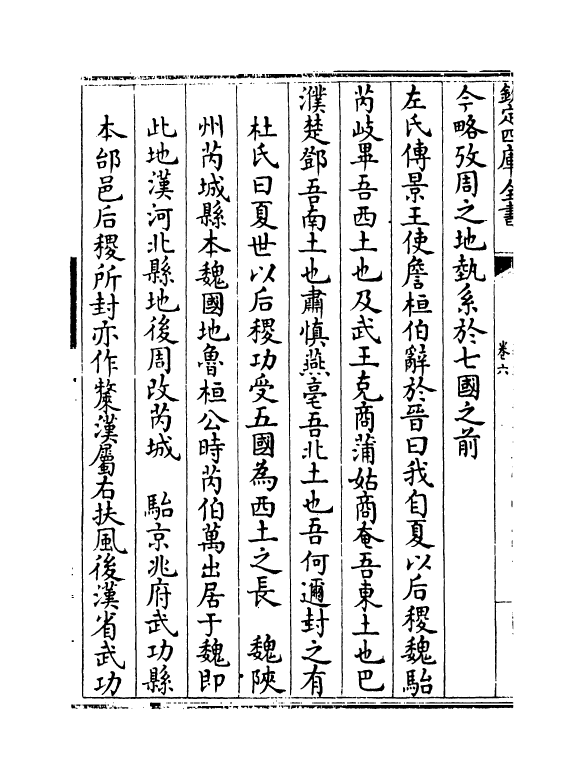 欽定四庫全書
卷六
今略攷周之地埶系於七國之前
左氏傳景王使詹桓伯辭於晉曰我自夏以后稷魏駘
芮岐畢吾西土也及武王克商蒲姑商奄吾東土也巴
濮楚鄧吾南土也肅慎燕亳吾北土也吾何邇封之有
杜氏曰夏世以后稷功受五國為西土之長　魏陜
州芮城縣本魏國地魯桓公時芮伯萬出居于魏即
此地漢河北縣地後周改芮城　駘京兆府武功縣
本邰邑后稷所封亦作斄漢屬右扶風後漢省武功